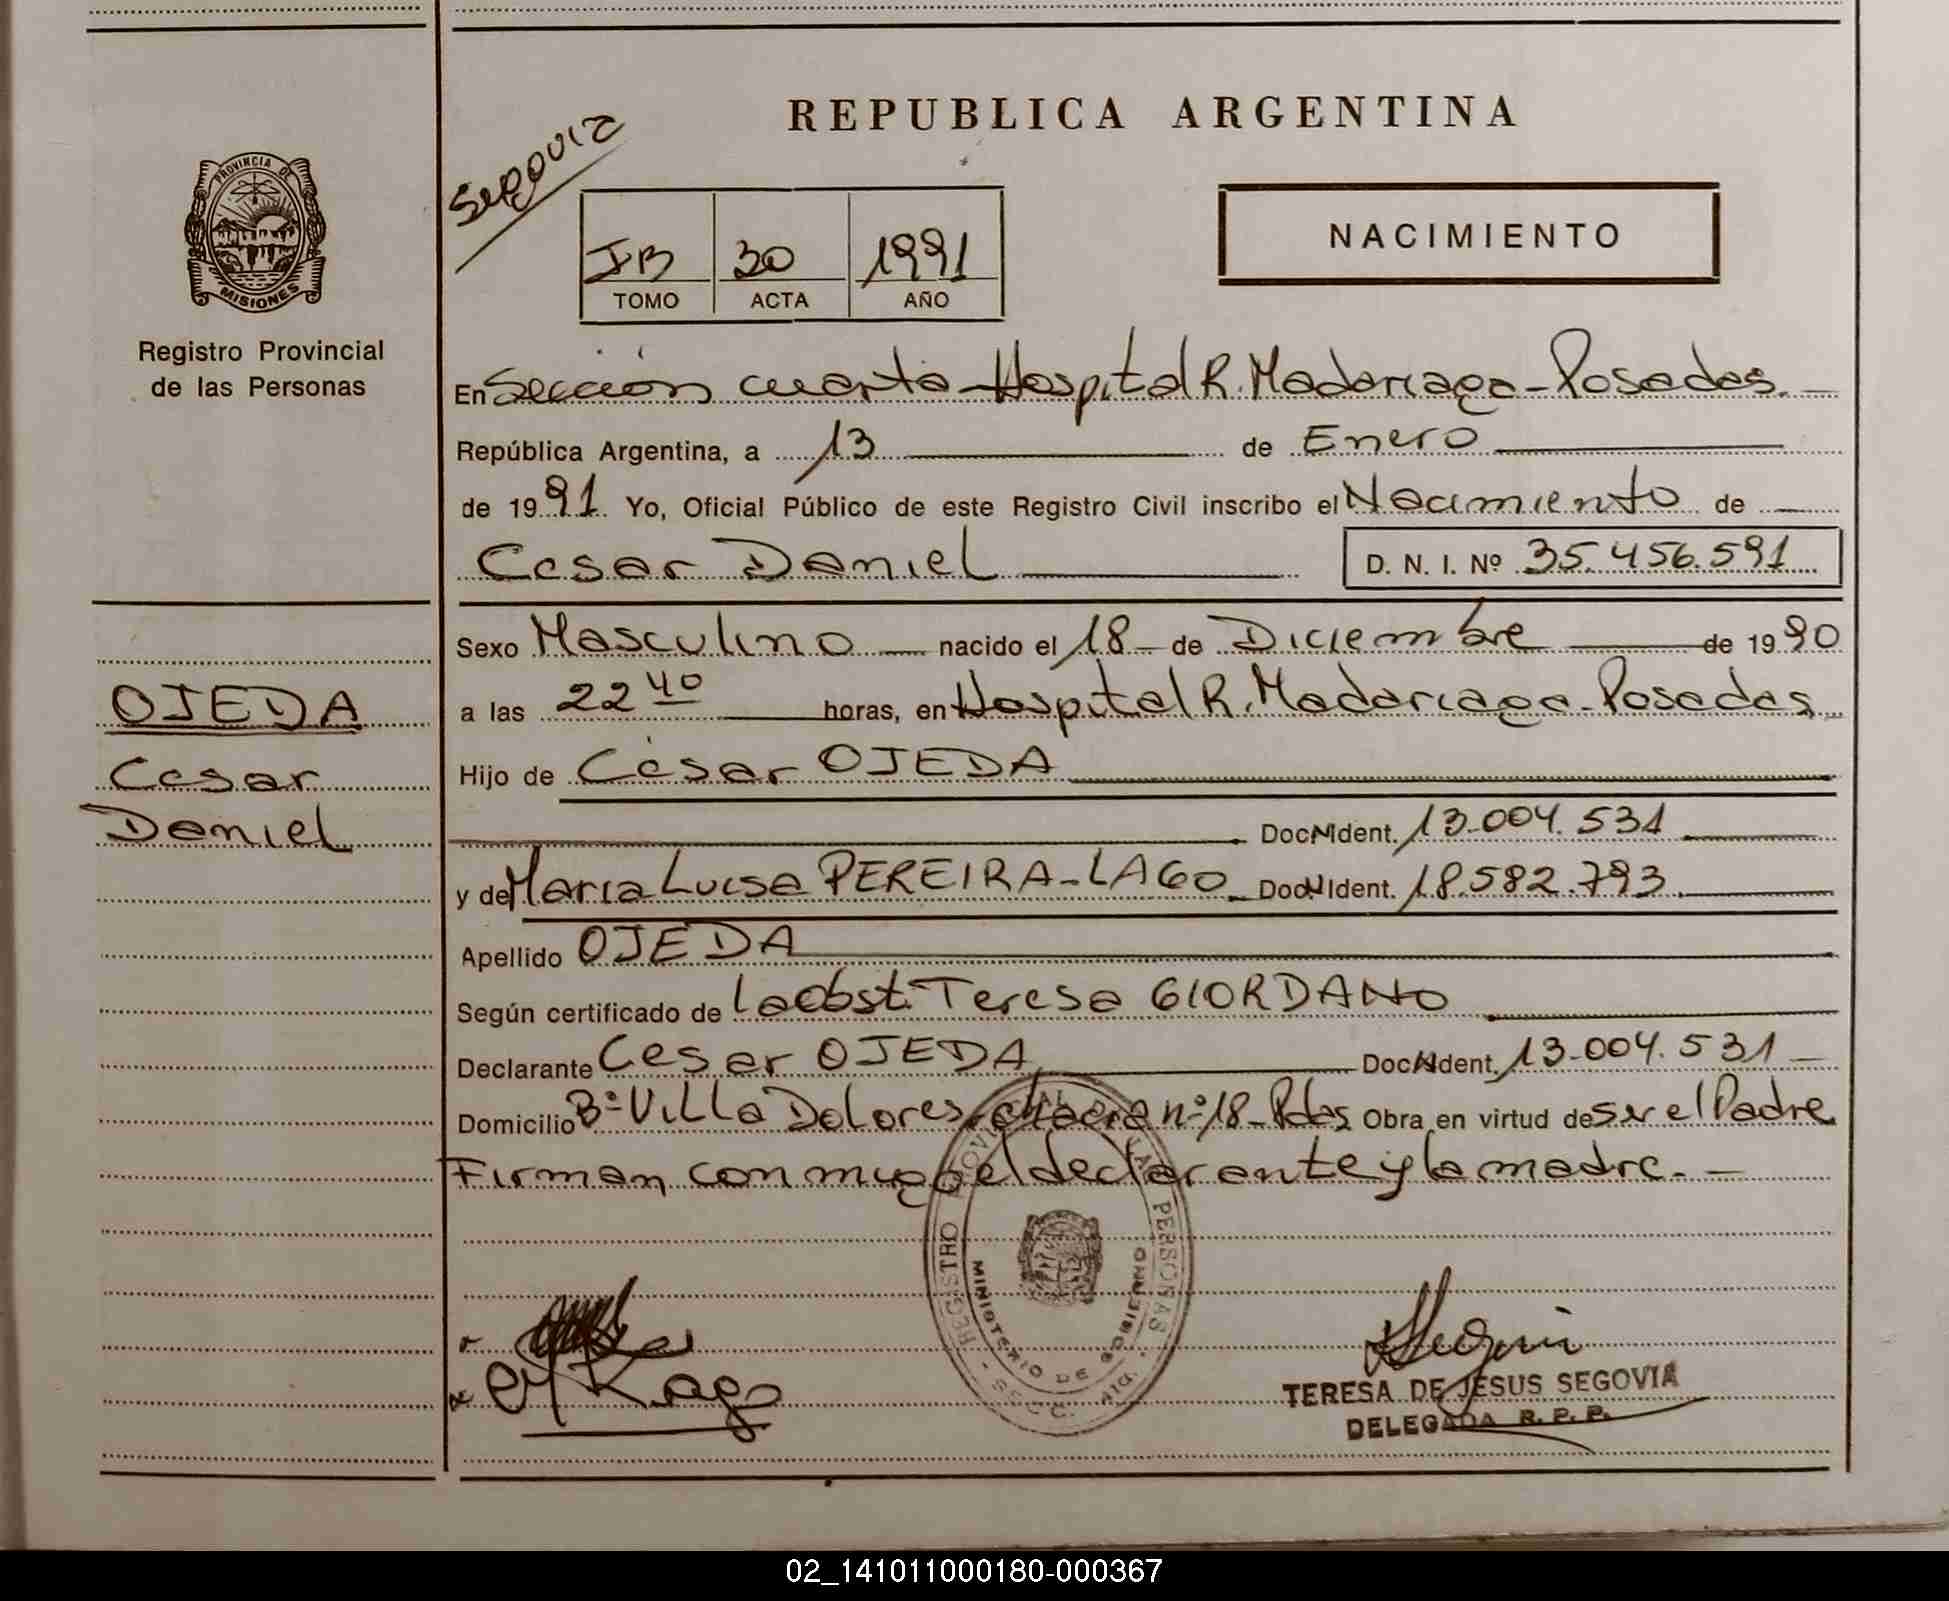 REPUBLICA ARGENTINA
Segovia
PROVINCIA DE
MISIONES
Registro Provincial
de las Personas
IB 30 1991
TOMO ACTA AÑO
NACIMIENTO
En Sección cuarta - Hospital R. Madariaga - Posadas. -
República Argentina, a 13 de Enero
de 1991 Yo, Oficial Público de este Registro Civil inscribo el Nacimiento de
Cesar Daniel D. N. I. Nº 35.456.591
Sexo Masculino nacido el 18 - de Diciembre de 1990
a las 22 40 horas, en Hospital R. Madariaga - Posadas
OJEDA
Cesar
Daniel
Hijo de César OJEDA
Doc. N Ident. 13.004.531
y de Maria Luisa PEREIRA - LAGO - Doc. N Ident. 18.582.793
Apellido OJEDA
Según certificado de la Obst. Teresa GIORDANO
Declarante Cesar OJEDA Doc. N Ident. 13.004.531 -
Domicilio Bº Villa Dolores, chacra nº 18 - Pdas Obra en virtud de ser el Padre
Firman conmigo el declarante y la madre. -
REGISTRO PROVINCIAL DE LAS PERSONAS
MINISTERIO DE GOBIERNO
TERESA DE JESUS SEGOVIA
DELEGADA R. P. P.
02_141011000180-000367